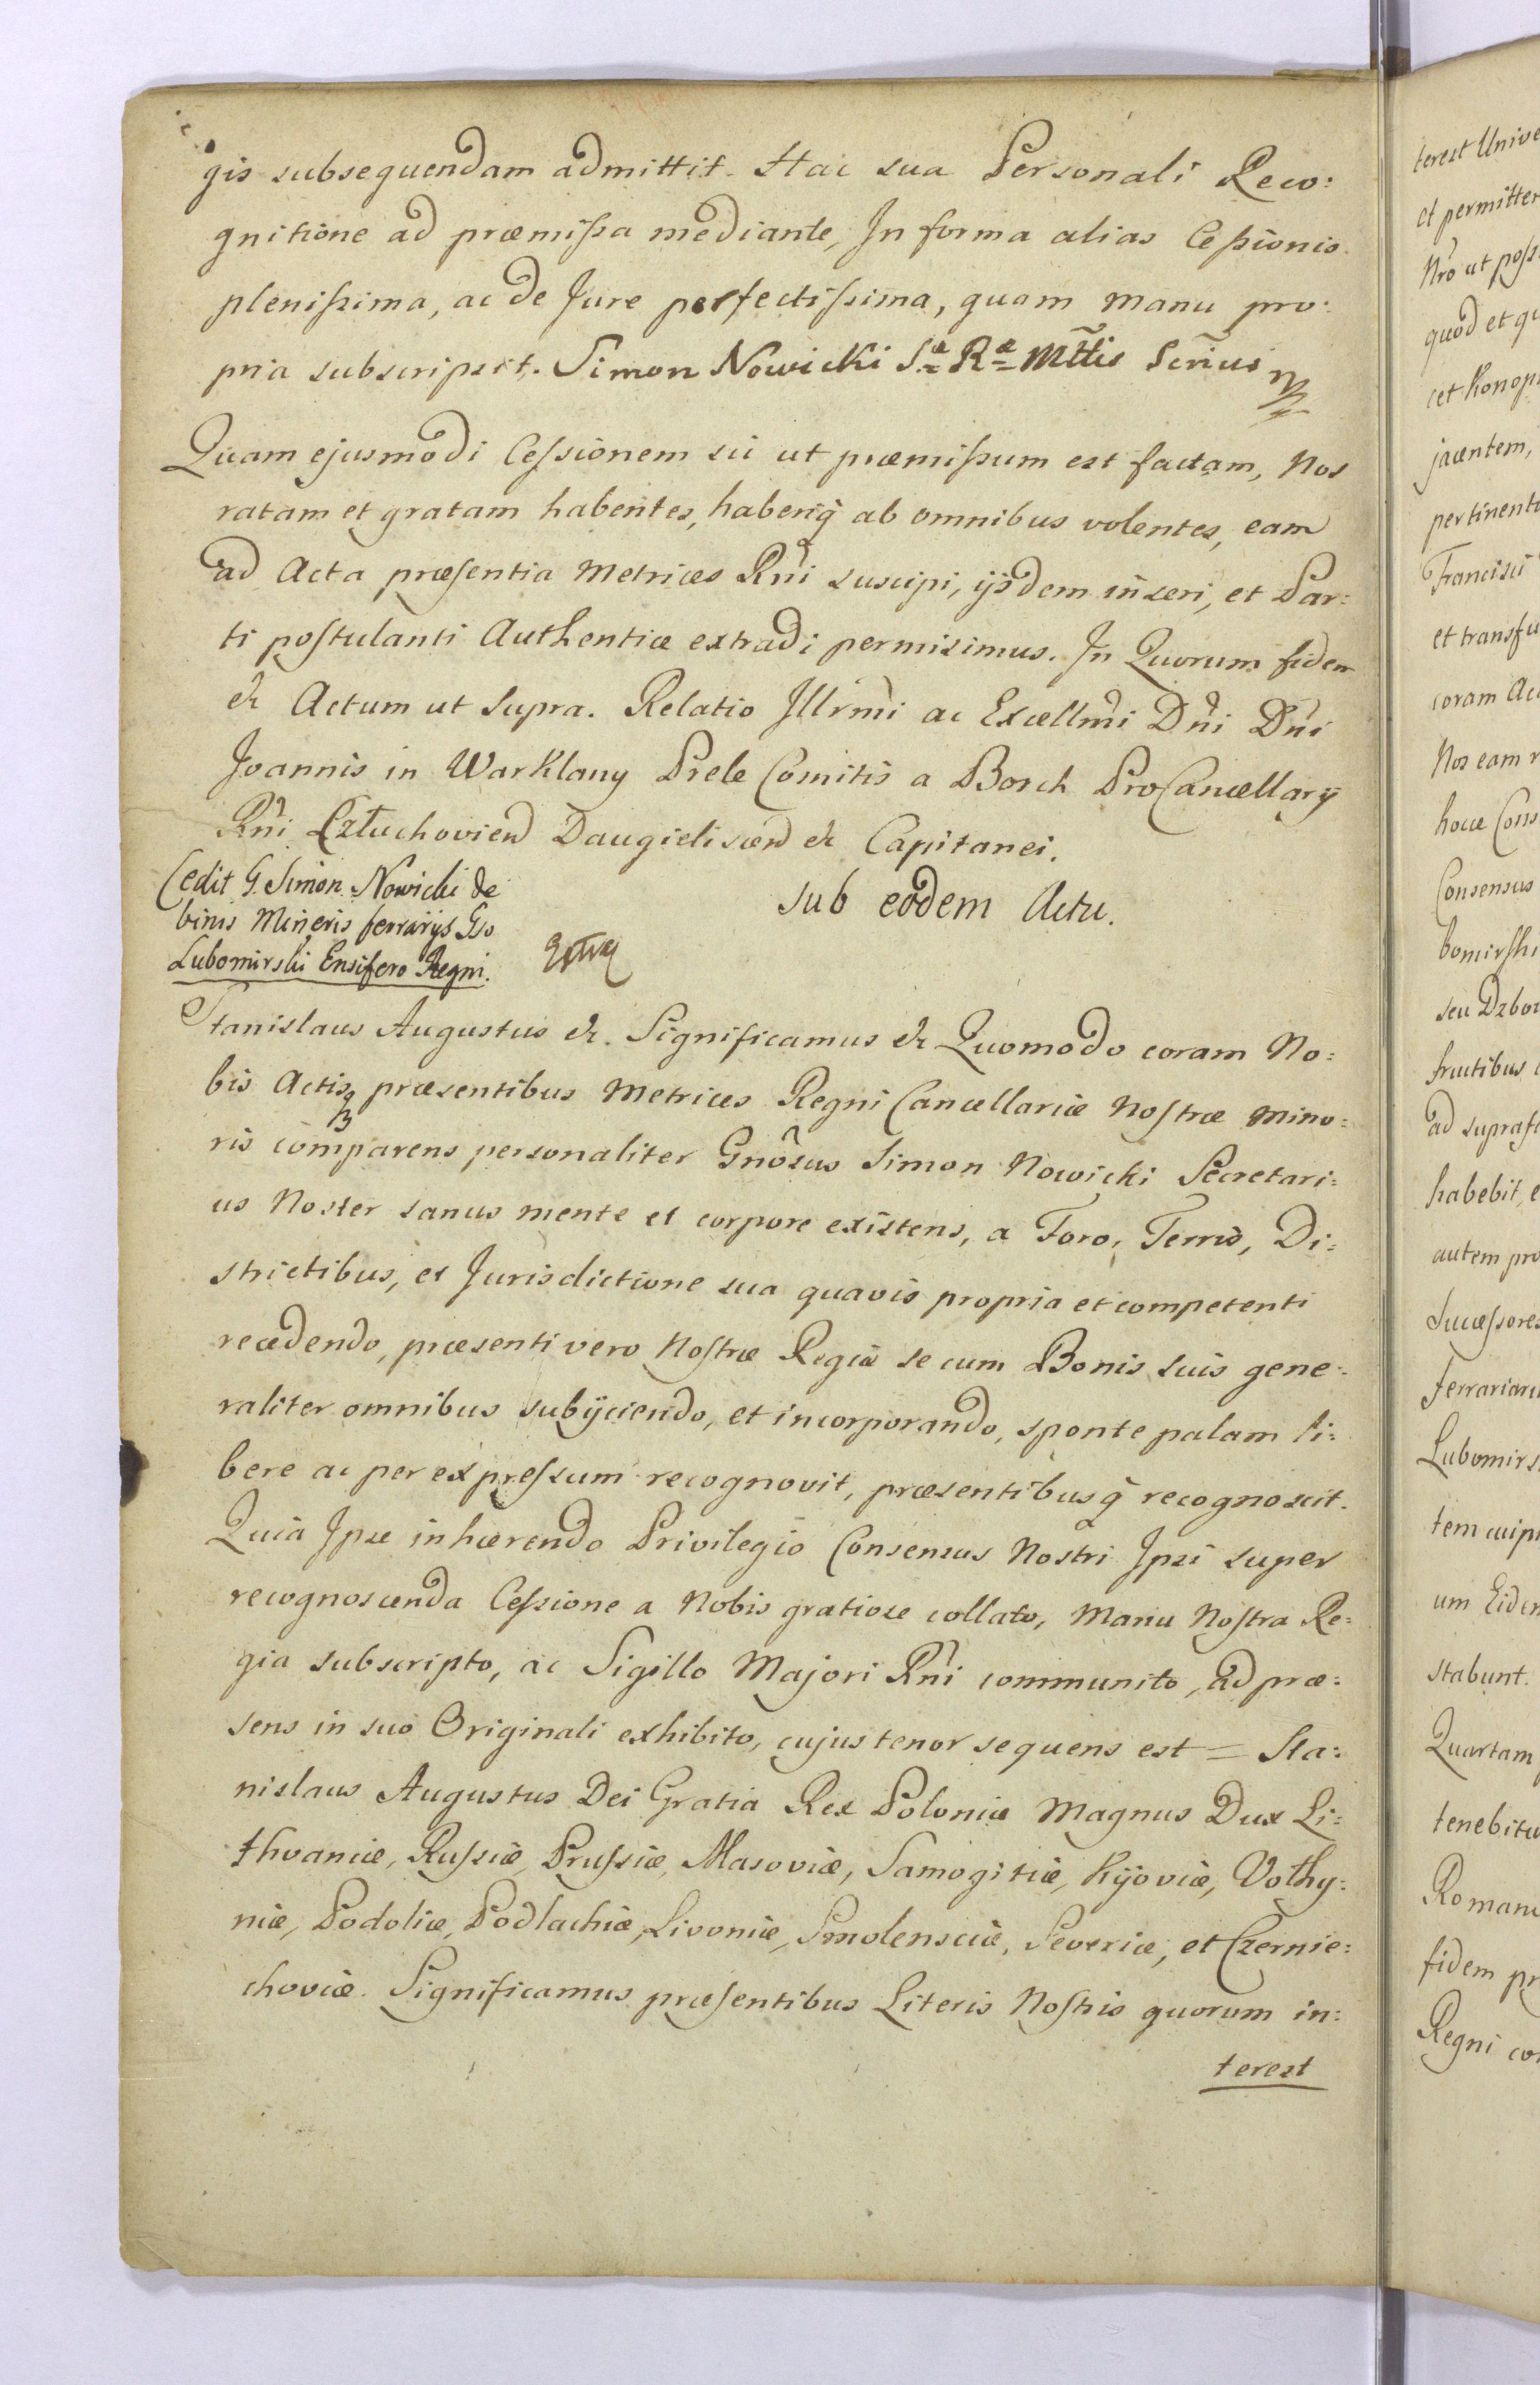 gis subsequendam admittit. Hac sua Personali Reco:
gnitione ad præmissa mediante, In forma alias Cessionis
plenissima, ac de Jure perfectissima, quam manu pro:
pria subscripsit. Simon Nowicki Sæ Ræ Mttis Scrius mp
Quam ejusmodi Cessionem sic ut præmissum est factam, Nos
ratam et gratam habentes, haberiq̃ ab omnibus volentes, eam
ad Acta præsentia Metrices Rni suscipi, ijsdem inseri, et Par:
ti postulanti Authentice extradi permisimus. In Quorum fidem
&c Actum ut Supra. Relatio Illrmi ac Excellmi Dni Dni
Joannis in Warklany Prele Comitis a Borch ProCancellarij
Rni Człuchovien Daugieliscen &c Capitanei.
Cedit G. Simon Nowicki de
binis Mineris ferrarijs Gso
Lubomirski Ensifero Regni.
Extra
Sub eodem Actu.
Stanislaus Augustus &c. Significamus &c Quomodo coram No:
bis Actisq præsentibus Metrices Regni Cancellariæ Nostræ Mino:
ris comparens personaliter Gnosus Simon Nowicki Secretari:
us Noster sanus mente et corpore existens, a Foro, Terris, Di:
strictibus, et Jurisdictione sua quavis propria et competenti
recedendo, præsenti vero Nostræ Regiæ se cum Bonis suis gene:
raliter omnibus subijciendo, et incorporando, sponte palam li:
bere ac per expressum recognovit, præsentibusq̃ recognoscit.
Quia Ipse inhærendo Privilegio Consensus Nostri Ipsi super
recognoscenda Cessione a Nobis gratiose collato, Manu Nostra Re:
gia subscripto, ac Sigillo Majori Rni communito, ad præ:
sens in suo Originali exhibito, cujus tenor sequens est = Sta:
nislaus Augustus Dei Gratia Rex Poloniæ Magnus Dux Li:
thvaniæ, Russiæ, Prussiæ, Masoviæ, Samogitiæ, Kijoviæ, Volhy:
niæ, Podoliæ, Podlachiæ, Livoniæ, Smolensciæ, Severiæ, et Czernie:
choviæ. Significamus præsentibus Literis Nostris quorum in:
terest
terest Unive
et permitter
Nro ut poss
quod et qu
cet Konop
jacentem,
pertinenti
Francisci
et transfu
coram Act
Nos eam r
hocce Cons
Consensus
bomirski
seu Dzbor
fructibus
ad supraf
habebit, e
autem pro
Successores
ferrariaru
Lubomirs
tem cuip
um Eidem
stabunt.
Quartam
tenebitu
Romano
fidem pr
Regni co